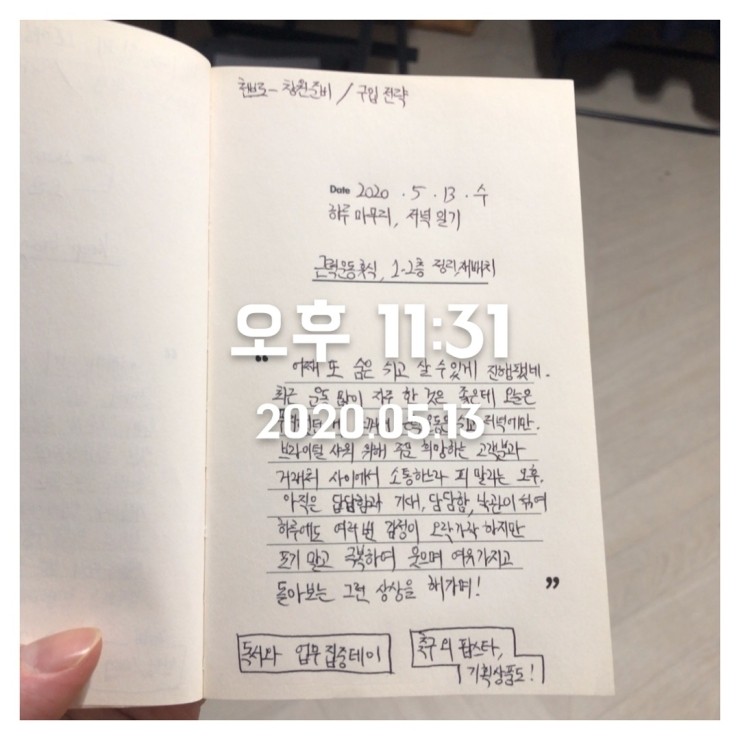 창원준비 / 구입 전략
Date 2020 . 5 . 13 . 수
하루 마무리, 저녁 일기
근력운동 휴식, 1-2층 정리, 재배치
오후 11:31
" 어째 또 숨은 쉬고 살 수 있게 진행됐네.
최근 운동 많이 자주 한 것은 좋은데 오늘은
2020.05.13
저녁에만.
브라이덜 샤워 위해 주문 희망하는 고객분과
거래처 사이에서 소통하느라 피 말리는 오후.
아직은 답답함과 기대, 담담함, 낙관이 섞여
하루에도 여러번 감정이 오락가락 하지만
포기 말고 극복하며 웃으며 여유가지고
돌아보는 그런 상상을 해가며! "
독서와 업무 집중데이
축구의 팝스타,
기획상품도!